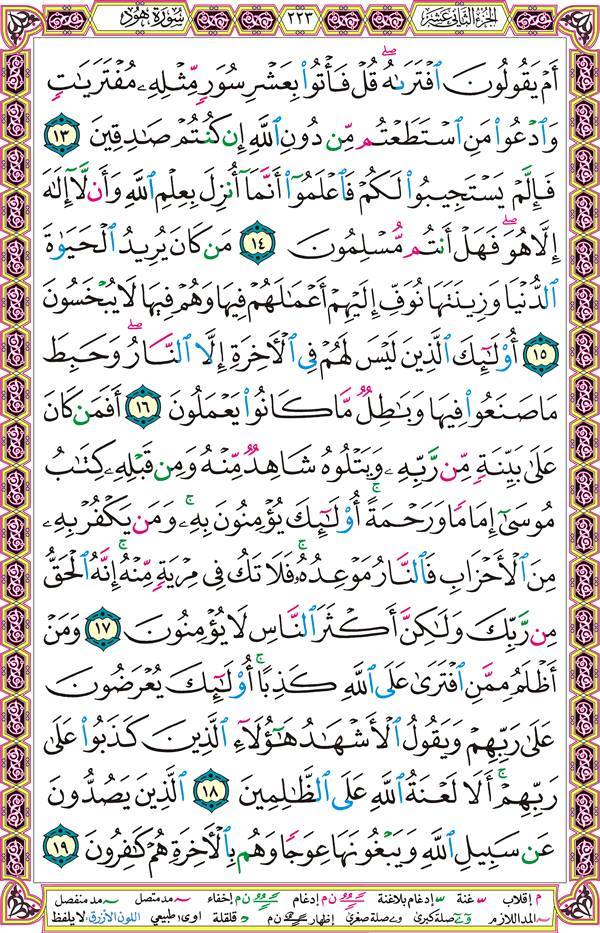 الجزء الثاني عشر ٢٢٣ سورة هود
أَمْ يَقُولُونَ ٱفْتَرَىٰهُ ۖ قُلْ فَأْتُوا۟ بِعَشْرِ سُوَرٍ مِّثْلِهِۦ مُفْتَرَيَٰتٍ
وَٱدْعُوا۟ مَنِ ٱسْتَطَعْتُم مِّن دُونِ ٱللَّهِ إِن كُنتُمْ صَٰدِقِينَ ١٣
فَإِلَّمْ يَسْتَجِيبُوا۟ لَكُمْ فَٱعْلَمُوٓا۟ أَنَّمَآ أُنزِلَ بِعِلْمِ ٱللَّهِ وَأَن لَّآ إِلَٰهَ
إِلَّا هُوَ ۖ فَهَلْ أَنتُم مُّسْلِمُونَ ١٤ مَن كَانَ يُرِيدُ ٱلْحَيَوٰةَ
ٱلدُّنْيَا وَزِينَتَهَا نُوَفِّ إِلَيْهِمْ أَعْمَٰلَهُمْ فِيهَا وَهُمْ فِيهَا لَا يُبْخَسُونَ
١٥ أُو۟لَٰٓئِكَ ٱلَّذِينَ لَيْسَ لَهُمْ فِى ٱلْءَاخِرَةِ إِلَّا ٱلنَّارُ ۖ وَحَبِطَ
مَا صَنَعُوا۟ فِيهَا وَبَٰطِلٌ مَّا كَانُوا۟ يَعْمَلُونَ ١٦ أَفَمَن كَانَ
عَلَىٰ بَيِّنَةٍ مِّن رَّبِّهِۦ وَيَتْلُوهُ شَاهِدٌ مِّنْهُ وَمِن قَبْلِهِۦ كِتَٰبُ
مُوسَىٰٓ إِمَامًا وَرَحْمَةً ۚ أُو۟لَٰٓئِكَ يُؤْمِنُونَ بِهِۦ ۚ وَمَن يَكْفُرْ بِهِۦ
مِنَ ٱلْأَحْزَابِ فَٱلنَّارُ مَوْعِدُهُۥ ۚ فَلَا تَكُ فِى مِرْيَةٍ مِّنْهُ ۚ إِنَّهُ ٱلْحَقُّ
مِن رَّبِّكَ وَلَٰكِنَّ أَكْثَرَ ٱلنَّاسِ لَا يُؤْمِنُونَ ١٧ وَمَنْ
أَظْلَمُ مِمَّنِ ٱفْتَرَىٰ عَلَى ٱللَّهِ كَذِبًا ۚ أُو۟لَٰٓئِكَ يُعْرَضُونَ
عَلَىٰ رَبِّهِمْ وَيَقُولُ ٱلْأَشْهَٰدُ هَٰٓؤُلَآءِ ٱلَّذِينَ كَذَبُوا۟ عَلَىٰ
رَبِّهِمْ ۚ أَلَا لَعْنَةُ ٱللَّهِ عَلَى ٱلظَّٰلِمِينَ ١٨ ٱلَّذِينَ يَصُدُّونَ
عَن سَبِيلِ ٱللَّهِ وَيَبْغُونَهَا عِوَجًا وَهُم بِٱلْءَاخِرَةِ هُمْ كَٰفِرُونَ ١٩
م إقلاب غنة إدغام بلاغنة ن م إدغام ن م إخفاء مد متصل مد منفصل
المد اللازم صلة كبرى صلة صغرى إظهار ن م قلقلة اوى طبيعي اللون الأزرق: لا يلفظ